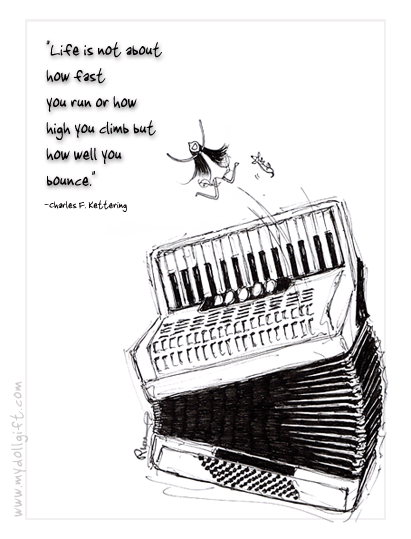 "Life is not about
how fast
you run or how
high you climb but
how well you
bounce."
-Charles F. Kettering
www.mydollgift.com